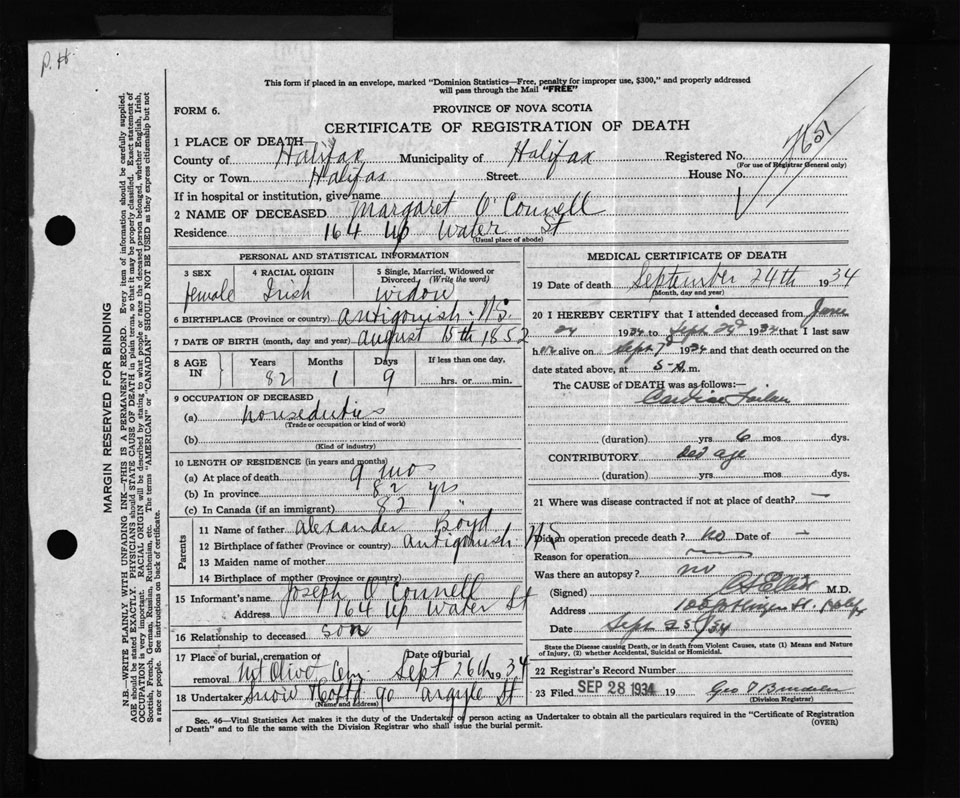 P. H.
This form if placed in an envelope, marked "Dominion Statistics—Free, penalty for improper use, $300," and properly addressed
will pass through the Mail "FREE"
FORM 6.
PROVINCE OF NOVA SCOTIA
CERTIFICATE OF REGISTRATION OF DEATH
1 PLACE OF DEATH
County of Halifax Municipality of Halifax Registered No.
(For use of Registrar General only)
City or Town Halifax Street House No.
If in hospital or institution, give name
2 NAME OF DECEASED Margaret O'Connell
Residence 164 Up Water St
(Usual place of abode)
PERSONAL AND STATISTICAL INFORMATION
3 SEX 4 RACIAL ORIGIN 5 Single, Married, Widowed or
Divorced, (Write the word)
female Irish widow
6 BIRTHPLACE (Province or country) Antigonish - N.S.
7 DATE OF BIRTH (month, day and year) August 15th 1852
8 AGE IN Years Months Days If less than one day,
82 1 9 hrs. or min.
9 OCCUPATION OF DECEASED
(a) houseduties
(Trade or occupation or kind of work)
(b)
(Kind of industry)
10 LENGTH OF RESIDENCE (in years and months)
(a) At place of death 9 mos
(b) In province 82 yrs
(c) In Canada (if an immigrant) 82 "
Parents
11 Name of father Alexander Boyd
12 Birthplace of father (Province or country) Antigonish N.S
13 Maiden name of mother
14 Birthplace of mother (Province or country)
15 Informant's name Joseph O'Connell
Address 164 Up Water St
16 Relationship to deceased son
17 Place of burial, cremation or Date of burial
removal Mt Olivet Cem Sept 26th 1934
18 Undertaker Snow 90 Argyle St
(Name and address)
MEDICAL CERTIFICATE OF DEATH
19 Date of death September 24th 1934
(Month, day and year)
20 I HEREBY CERTIFY that I attended deceased from
1934 to Sept 1934 that I last saw
h alive on Sept 1934 and that death occurred on
date stated above, at 5-A.m.
The CAUSE OF DEATH was as follows:—
Cardiac Failure
(duration) yrs 6 mos dys.
CONTRIBUTORY age
(duration) yrs. mos. dys.
21 Where was disease contracted if not at place of death? —
Did an operation precede death? No Date of —
Reason for operation
Was there an autopsy? no
(Signed) M.D.
Address St.
Date Sept 25/34
State the Disease causing Death, or in death from Violent Causes, state (1) Means and Nature
of Injury, (2) whether Accidental, Suicidal or Homicidal.
22 Registrar's Record Number
23 Filed SEP 28 1934 19 Geo
(Division Registrar)
Sec. 46—Vital Statistics Act makes it the duty of the Undertaker or person acting as Undertaker to obtain all the particulars required in the "Certificate of Registration
of Death" and to file the same with the Division Registrar who shall issue the burial permit.
(OVER)
MARGIN RESERVED FOR BINDING
N.B.—WRITE PLAINLY WITH UNFADING INK—THIS IS A PERMANENT RECORD. Every item of information should be carefully supplied.
AGE should be stated EXACTLY. PHYSICIANS should STATE CAUSE OF DEATH in plain terms, so that it may be properly classified. Exact statement of
OCCUPATION is very important. RACIAL ORIGIN will be described by stating to what people or race the deceased person belonged, whether English, Irish,
Scottish, French, German, Russian, Ruthenian, etc. The terms "AMERICAN" or "CANADIAN" SHOULD NOT BE USED as they express citizenship but not
a race or people. See instructions on back of certificate.